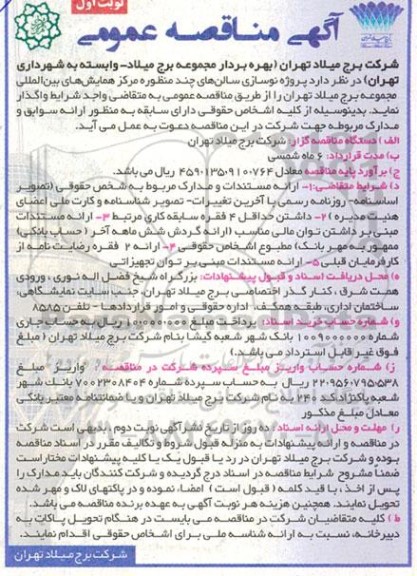 نوبت اول
آگهی مناقصه عمومی
شرکت برج میلاد تهران (بهره بردار مجموعه برج میلاد- وابسته به شهرداری
تهران) در نظر دارد پروژه نوسازی سالن‌های چند منظوره مرکز همایش‌های بین‌المللی
مجموعه برج میلاد تهران را از طریق مناقصه عمومی به متقاضی واجد شرایط واگذار
نماید. بدینوسیله از کلیه اشخاص حقوقی دارای سابقه به منظور ارائه سوابق و
مدارک مربوطه جهت شرکت در این مناقصه دعوت به عمل می آید.
الف) دستگاه مناقصه گزار: شرکت برج میلاد تهران
ب) مدت قرارداد: ۶ ماه شمسی
ج) برآورد پایه مناقصه معادل ۴۵۹،۱۳۵،۹۱۰،۷۶۴ ریال می باشد.
د) شرایط متقاضی: ۱- ارائه مستندات و مدارک مربوط به شخص حقوقی (تصویر
اساسنامه- روزنامه رسمی با آخرین تغییرات- تصویر شناسنامه و کارت ملی اعضای
هیئت مدیره) ۲- داشتن حداقل ۴ فقره سابقه کاری مرتبط ۳- ارائه مستندات
مبنی بر داشتن توان مالی مناسب (ارائه گردش شش ماهه آخر (حساب بانکی)
ممهور به مهر بانک) مطبوع اشخاص حقوقی ۴- ارائه ۲ فقره رضایت نامه از
کارفرمایان قبلی ۵- ارائه مستندات مبنی بر توان تجهیزاتی
ه) محل دریافت اسناد و قبول پیشنهادات: بزرگراه شیخ فضل اله نوری، ورودی
همت شرق، کنار گذر اختصاصی برج میلاد تهران، جنب سایت نمایشگاهی،
ساختمان اداری، طبقه همکف، اداره حقوقی و امور قراردادها- تلفن ۸۵۸۵
و) شماره حساب خرید اسناد: پرداخت مبلغ ریال به حساب جاری
بانک شهر شعبه گیشا بنام شرکت برج میلاد تهران (مبلغ
فوق غیر قابل استرداد می باشد.)
ز) شماره حساب واریز مبلغ سپرده شرکت در مناقصه: واریز مبلغ
۲۲،۹۵۶،۷۹۵،۵۳۸ ریال به حساب سپرده شماره ۷۰۰۲۳۰۸۴۰۴ بانک شهر
شعبه پاکنژاد کد ۲۴۰ به نام شرکت برج میلاد تهران و یا ضمانتنامه معتبر بانکی
معادل مبلغ مذکور
ر) مهلت و محل ارائه اسناد: ده روز از تاریخ نشر آگهی نوبت دوم، بدیهی است شرکت
در مناقصه و ارائه پیشنهادات به منزله قبول شروط و تکالیف مقرر در اسناد مناقصه
بوده و شرکت برج میلاد تهران در رد یا قبول یک یا کلیه پیشنهادات مختار است
ضمناً مشروح شرایط مناقصه در اسناد درج گردیده و شرکت کنندگان باید مدارک را
پس از اخذ، با قید کلمه (قبول است) امضاء نموده و در پاکتهای لاک و مهر شده
تحویل نمایند. همچنین هزینه هر نوبت آگهی به عهده برنده مناقصه می باشد.
ط) کلیه متقاضیان شرکت در مناقصه می بایست در هنگام تحویل پاکات به
دبیرخانه، نسبت به ارائه شناسه ملی برای اشخاص حقوقی اقدام نمایند.
شرکت برج میلاد تهران